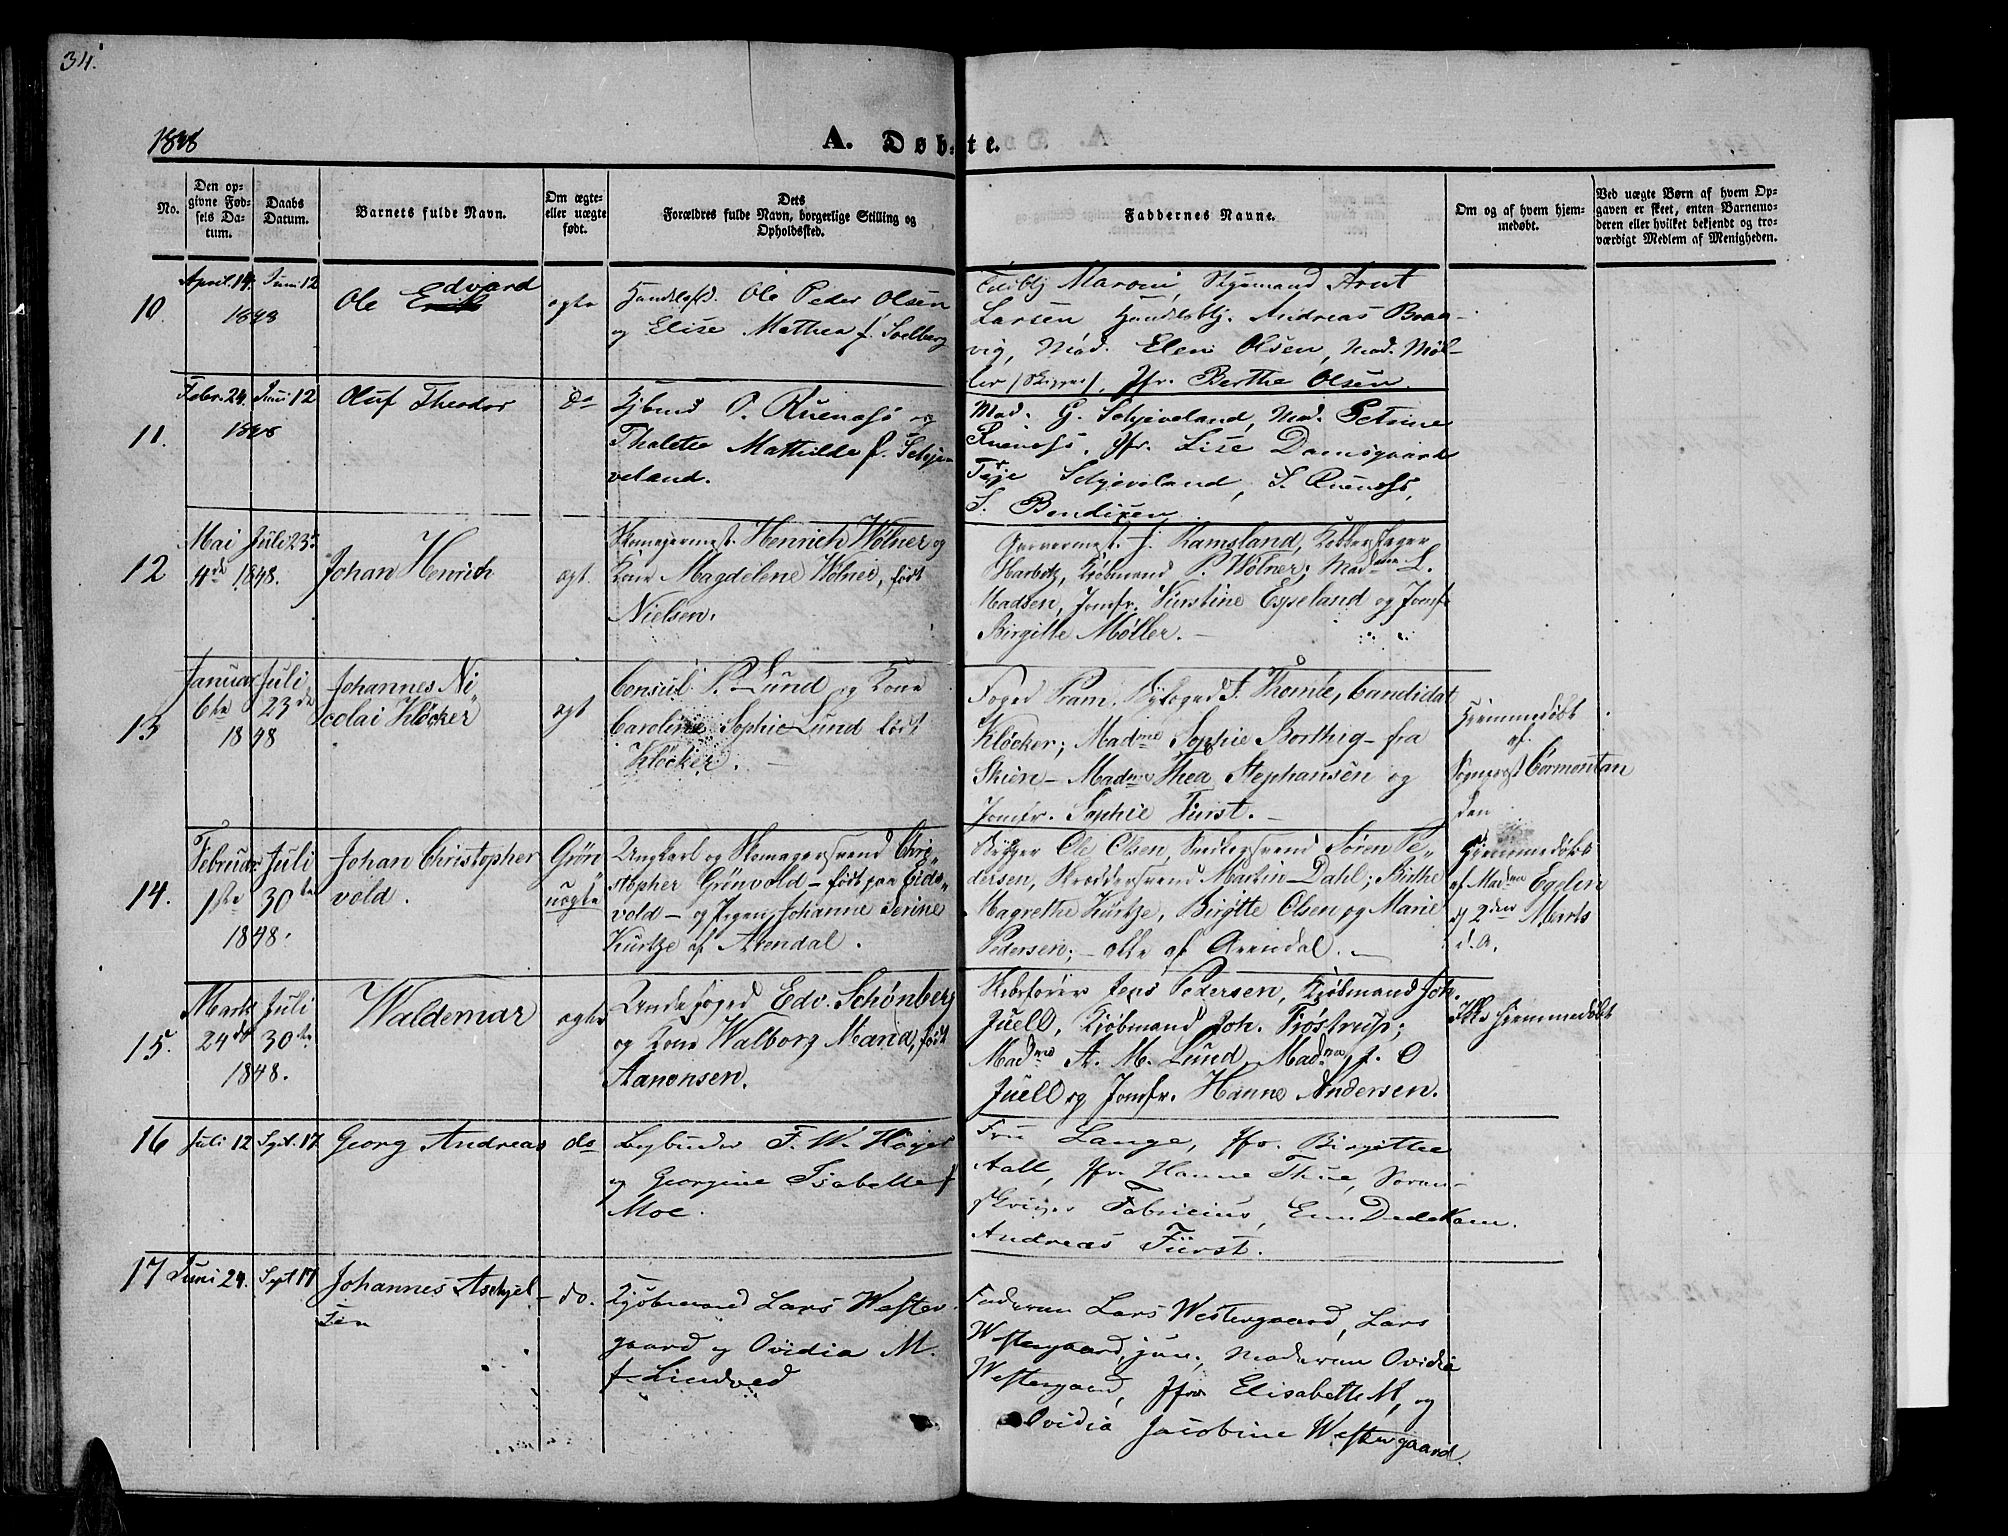 34.
1848
A. Døbte.
No.
Den opgivne Fødsels Datum.
Daabs Datum.
Barnets fulde Navn.
Om ægte eller uægte født.
Dets Forældres fulde Navn, borgerlige Stilling og Opholdssted.
Faddernes Navne.
Om og af hvem hjemmedøbt.
Ved uægte Børn af hvem Opgaven er skeet, enten Barnemoderen eller hvilket bekjendt og troværdigt Medlem af Menigheden.
10.
April. 14. Juni 12
1848
Ole Edvard
ægte
Ole Peder Olsen
og Elise Mathea f. Soelberg
Styrmand Arnt
Larsen, Handelsbtj. Andreas Braa-
vig, Mad. Elen Olsen, Mad. Møl-
ler (Skipper), Jfr. Berthe Olsen.
11.
Febr. 24. Juni 12
1848
Oluf Theodor
do
Kjbmd O. Ruenæss og
Thalette Mathilde f. Schje-
veland.
Mad. G. Schjeveland, Mad. Petrine
Ruenæss, Jfr. Lise Damsgaard
Terje Schjeveland, S. Ruenæss,
S. Bendixen
12
Mai Juli 23de
4de 1848.
Johan Henrich
ægt.
Skomagermest. Henrich Wølner og
Kone Magdelene Wølner, født
Nielsen.
Garvermest. J. Ramsland, Kobberslager
Harbitz, Kjøbmand P. Wølner; Madme L.
Madsen, Jomfr. Kirstine Espeland og Jomfr
Birgitte Møller. –
13
Januar Juli
6te 23de
1848
Johannes Ni-
colai Kløcker
ægt
Consul P. Lund og Kone
Caroline Sophie Lund født
Kløcker.
Foged Pram, Byfoged F. Thomle, Candidat
Kløcker; Madme Sophie Borthig – fra
Skien – Madme Thea Stephansen og
Jomfr. Sophie Fürst. –
Hjemmedøbt
af
Sognepræst Cormontan
den
14.
Februar Juli
1ste 30te
1848.
Johan Christopher Grøn
vold.
uægte
Ungkarl og Skomagersvend Chri-
stopher Grönvold – født paa Eids-
vold – og Pigen Johanne Serine
Kurtze af Arendal.
Skipper Ole Olsen, Sadlersvend Søren Pe-
dersen, Skreddersvend Martin Dahl; Birthe
Magrethe Kurtze, Birgitte Olsen og Marie
Pedersen; – alle af Arendal. –
Hjemmedøbt
af Madme Egelen
d 2den Marts
d. A.
15.
Marts Juli
24de 30te
1848.
Waldemar
ægte
Edv. Schønberg
og Kone Walborg Maria, født
Aanonsen.
Skibsfører Jens Pedersen, Kjøbmand Joh.
Juell, Kjøbmand Joh. Frøstrup;
Madme A. M. Lund, Madme J. O
Juell og Jomfr. Hanne Andersen.
Ikke hjemmedøbt
16
Juli 12 Sept. 17
Georg Andreas
do
F. W. Høyer
og Georgine Isabelle f
Moe.
Fru Lange, Jfr. Birgitte
Aall, Jfr. Hanne Thue, Soren-
skriver Fabricius, Dedekam.
Andreas Fürst.
17
Juni 24. Sept 17
Johannes Aschjel-
sen
do.
Kjøbmand Lars Wester-
gaard og Ovidia M.
f. Lindved
Faderen Lars Westergaard, Lars
Westergaard, jun., Moderen Ovidia
Westergaard, Jfr. Elisabeth M. og
Ovidia Jacobine Westergaard.